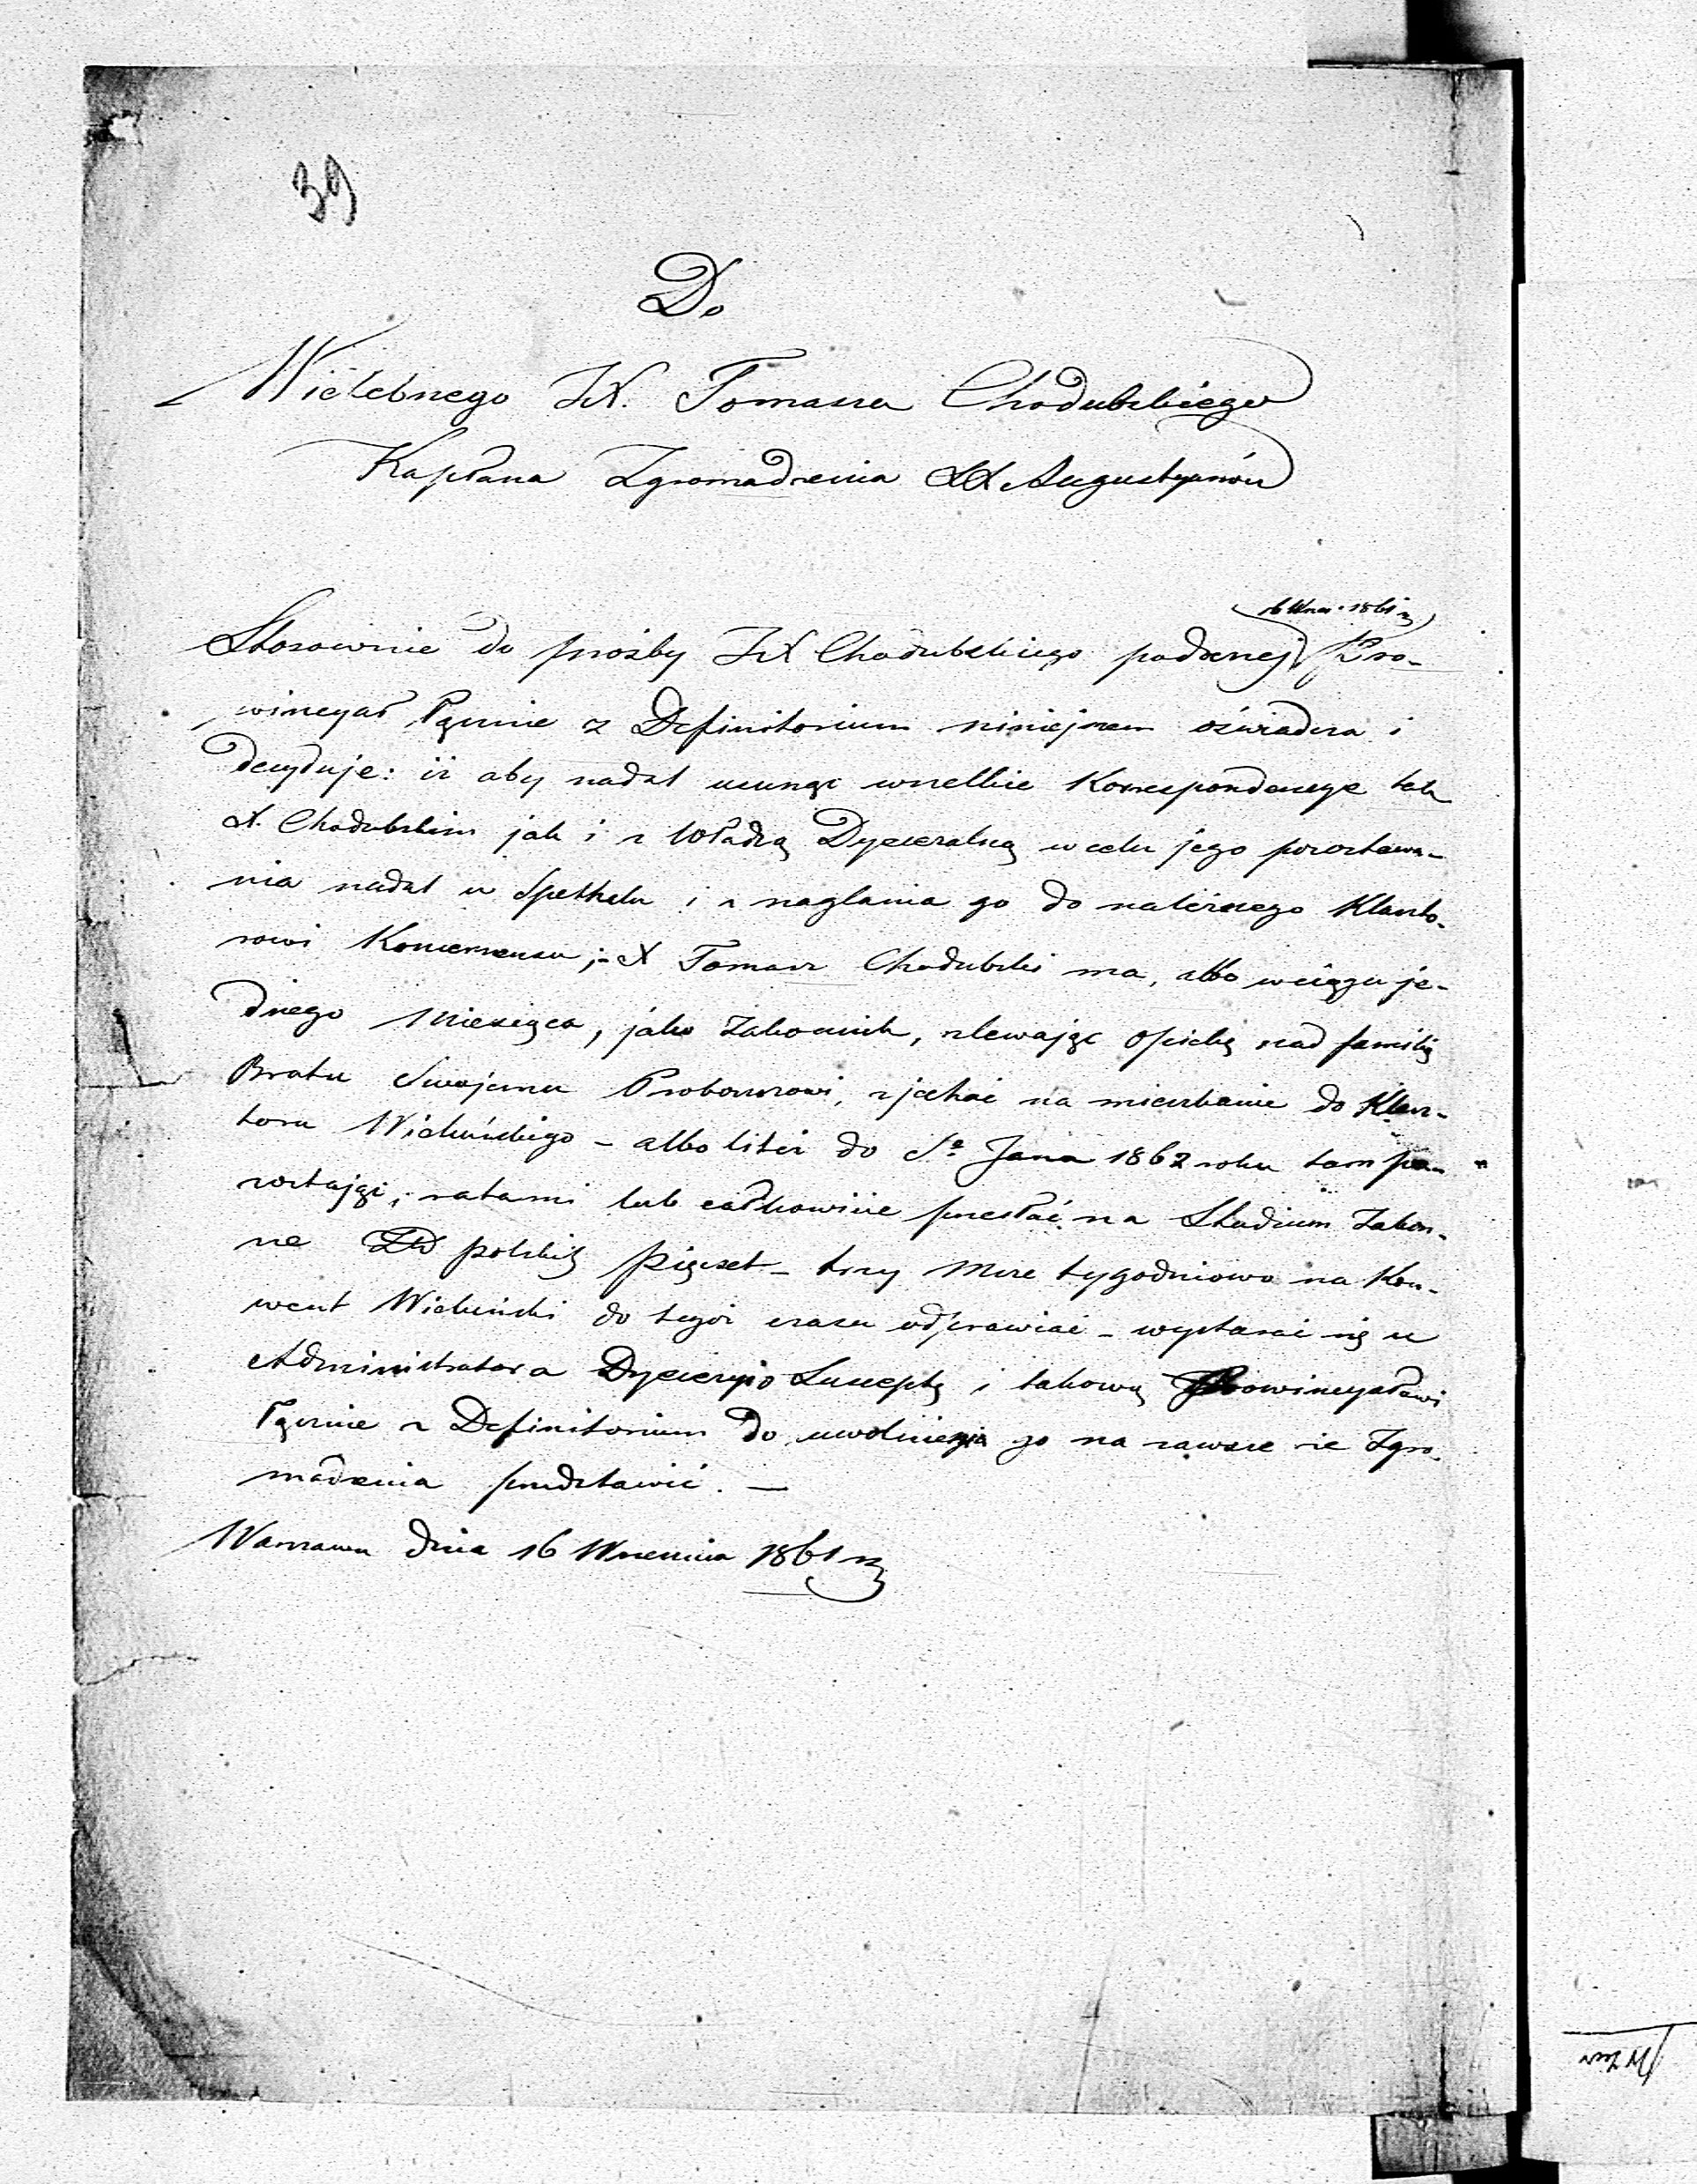 39
Do
Wielebnego JX. Tomasza Chodubskiego
Kapłana Zgromadzenia XX Augustyanów
16 Wrze. 1861 r
Stosownie do prośby JX Chodubskiego podanej Pro-
wincyał łącznie z Definitorium niniejszem oświadcza i
decyduje: iż aby nadal usunąć wszelkie Korrespondencye tak z
X. Chodubskim jak i z Władzą Dyecezalną w celu jego pozostawa-
nia nadal w i naglania go do należnego Klaszto-
rowi ;- X Tomasz Chodubski ma, albo w ciągu je-
dnego Miesiąca, jako Zakonnik, zlewając opiekę nad familią
Bratu Swojemu Proboszczowi, zjechać na mieszkanie do Klasz-
toru Wieluńskiego - albo też do Sº Jana 1862 roku tam po-
zostając, ratami lub całkowicie przesłać na Studium Zakon-
ne Złp polskich pięćset - trzy Msze tygodniowo na Kon-
went Wieluński do tegoż czasu odprawiać - wystarać się u
Administratora Dyecezyi o Susceptę i takową Prowincyałowi
łącznie z Definitorium do uwolnienia go na zawsze ze Zgro-
madzenia przedstawić. -
Warszawa dnia 16 Września 1861 r